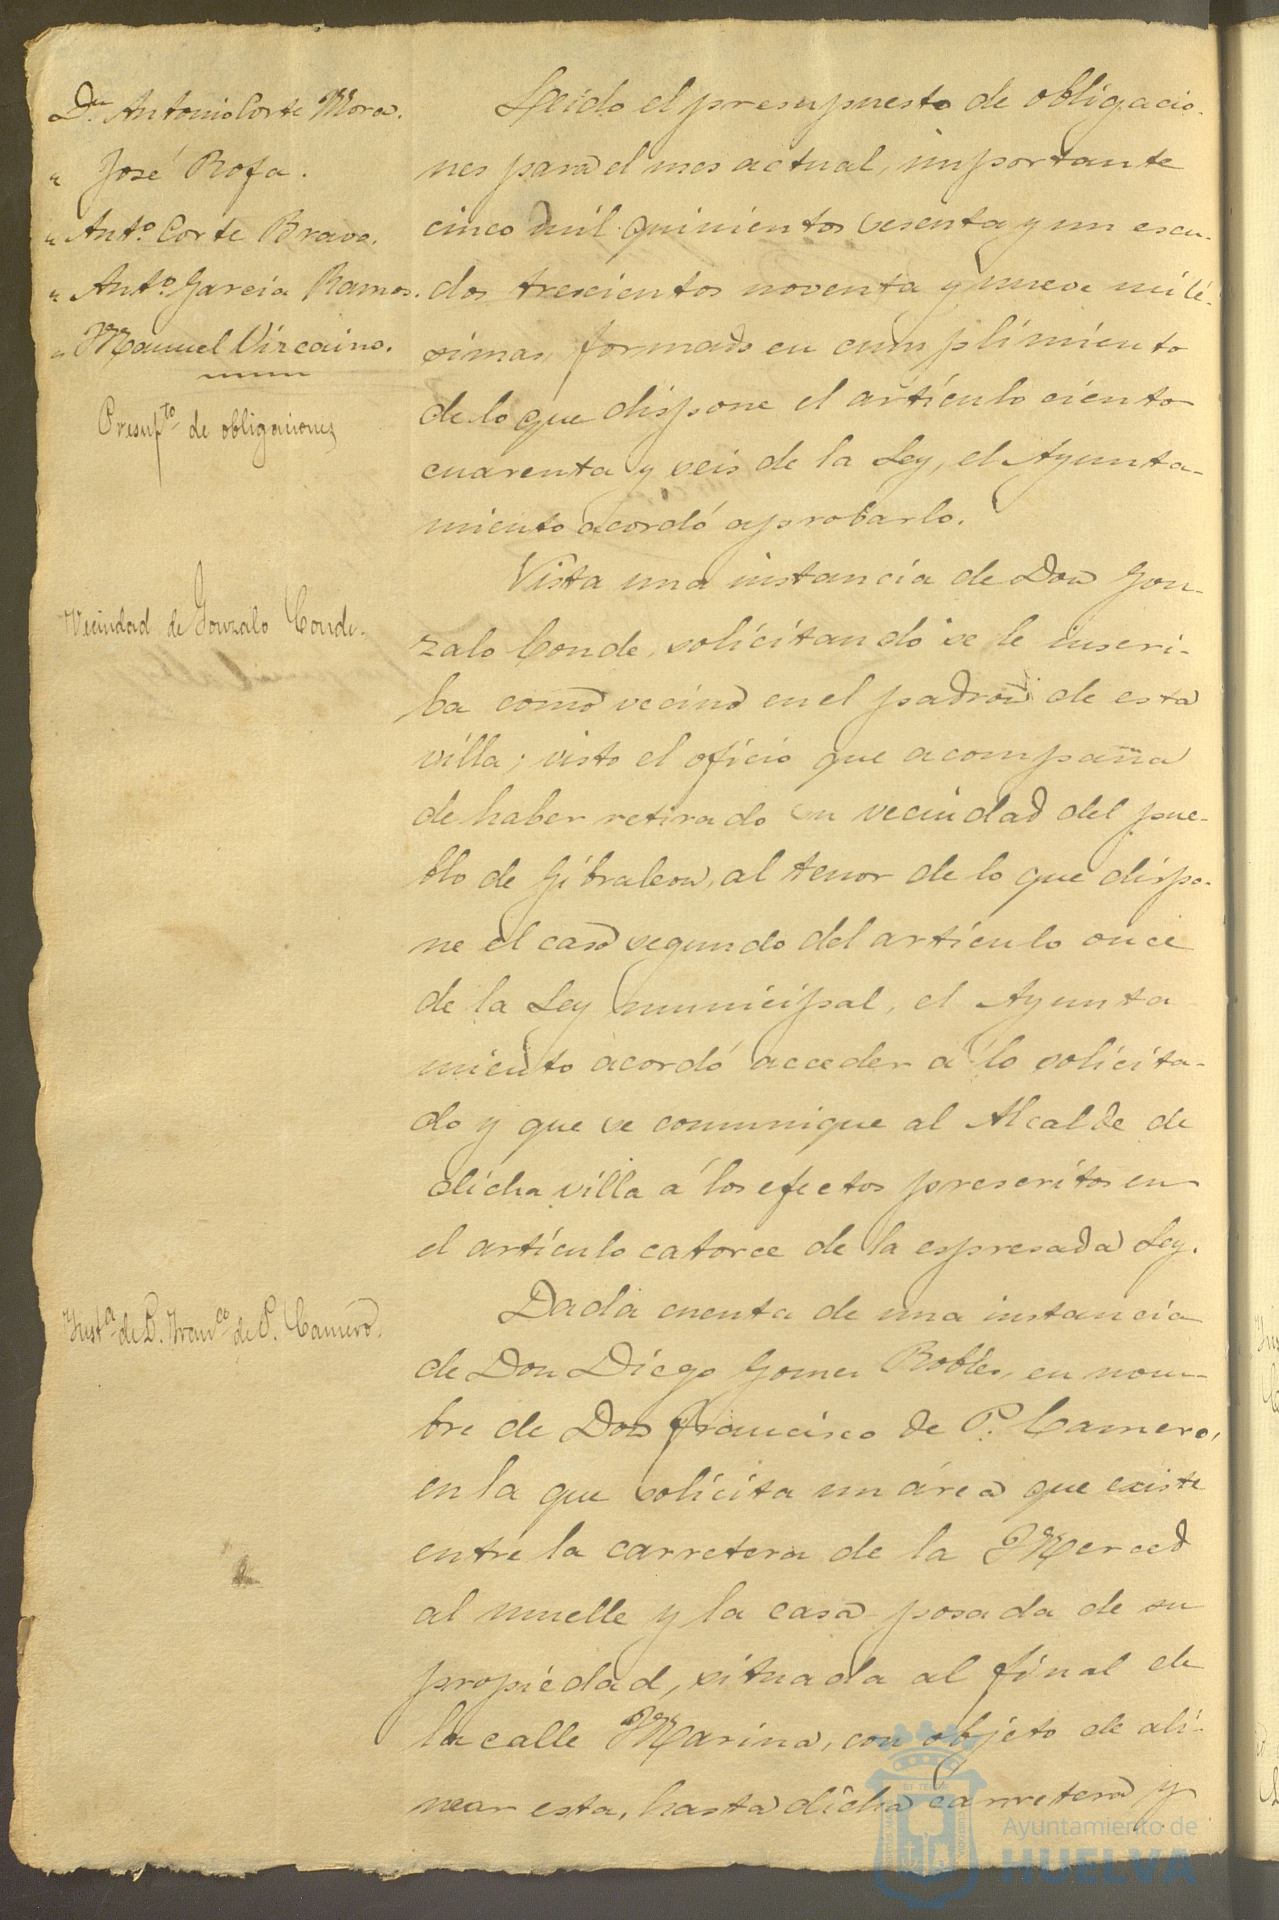 Dn. Antonio Corte Mora.
" José Rofa.
" Anto. Corte Bravo.
" Anto. Garcia Ramos.
" Manuel Vizcaino.
Presupto de obligaciones
Vecindad de Gonzalo Conde.
Insta de D. Franco de P. Camero.
Leido el presupuesto de obligacio-
nes para el mes actual, importante
cinco mil quinientos sesenta y un escu-
dos trescientos noventa y nueve milé-
simas, formado en cumplimiento
de lo que dispone el artículo ciento
cuarenta y seis de la Ley, el Ayunta-
miento acordó aprobarlo.
Vista una instancia de Don Gon-
zalo Conde, solicitando se le inscri-
ba como vecino en el padron de esta
villa; visto el oficio que acompaña
de haber retirado su vecindad del pue-
blo de Gibraleon, al tenor de lo que dispo-
ne el caso segundo del artículo once
de la Ley municipal, el Ayunta
miento acordó acceder á lo solicita-
do y que se comunique al Alcalde de
dicha villa á los efectos prescritos en
el artículo catorce de la espresada Ley.
Dada cuenta de una instancia
de Don Diego Gomez Robles, en nom-
bre de Don Francisco de P. Camero,
en la que solicita un área que existe
entre la carretera de la Merced
al muelle y la casa posada de su
propiedad, situada al final de
la calle Marina, con objeto de ali-
near esta, hasta dicha carretera y
Ayuntamiento de
HUELVA